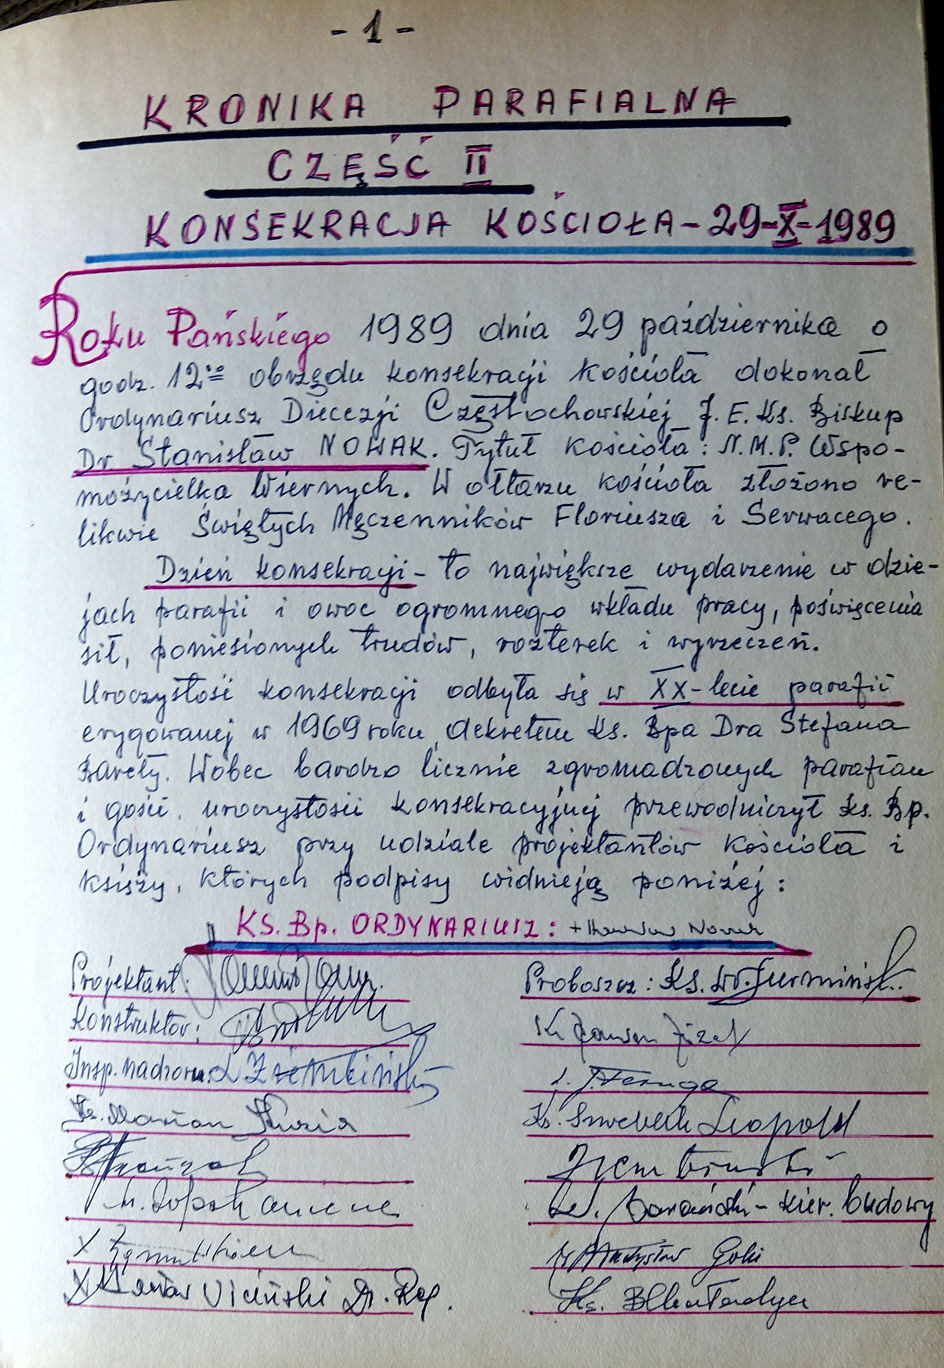 - 1 -
KRONIKA PARAFIALNA
CZĘŚĆ II
KONSEKRACJA KOŚCIOŁA - 29-X-1989
Roku Pańskiego 1989 dnia 29 października o
godz. 12⁰⁰ obrzędu konsekracji kościoła dokonał
Ordynariusz Diecezji Częstochowskiej J. E. Ks. Biskup
Dr Stanisław NOWAK. Tytuł kościoła: N.M.P. Wspo-
możycielka Wiernych. W ołtarzu kościoła złożono re-
likwie Świętych Męczenników Floriusza i Serwacego.
Dzień konsekracji - to największe wydarzenie w dzie-
jach parafii i owoc ogromnego wkładu pracy, poświęcenia
sił, poniesionych trudów, rozterek i wyrzeczeń.
Uroczystość konsekracji odbyła się w XX-lecie parafii
erygowanej w 1969 roku dekretem Ks. Bpa Dra Stefana
Bareły. Wobec bardzo licznie zgromadzonych parafian
i gości, uroczystości konsekracyjnej przewodniczył ks. Bp.
Ordynariusz przy udziale projektantów kościoła i
księży, których podpisy widnieją poniżej:
KS. Bp. ORDYNARIUSZ: + Stanisław Nowak
Projektant:
Proboszcz: Ks.
Konstruktor:
Insp. nadzoru:
Ks. Marian
Ks. Leopold
- kier. budowy
Władysław
X
X Dr.
Ks.